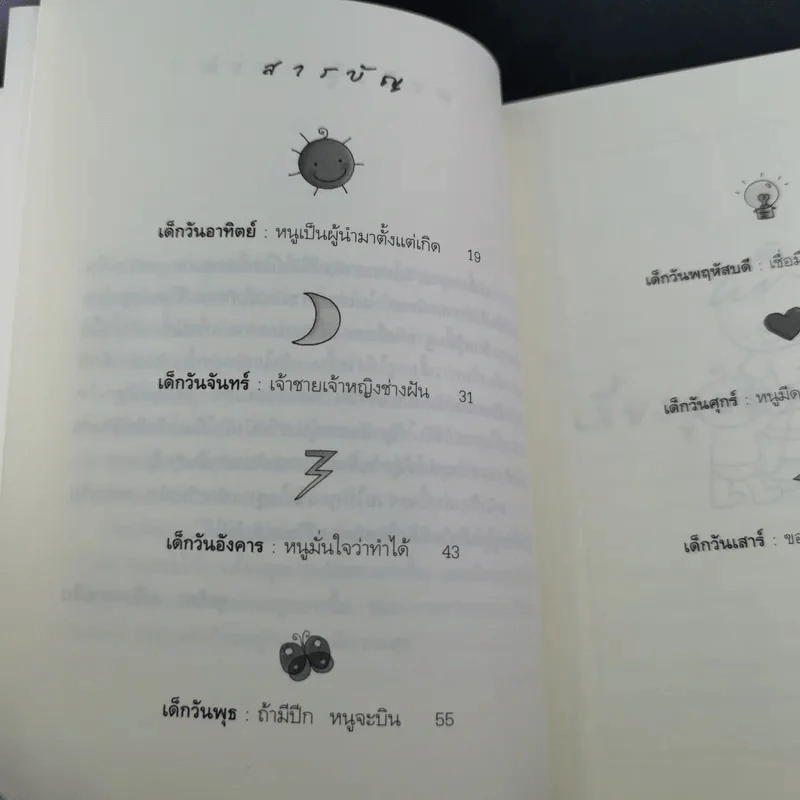 สารบัญ
เด็กวันอาทิตย์ : หนูเป็นผู้นำมาตั้งแต่เกิด 19
เด็กวันจันทร์ : เจ้าชายเจ้าหญิงช่างฝัน 31
เด็กวันอังคาร : หนูมั่นใจว่าทำได้ 43
เด็กวันพุธ : ถ้ามีปีก หนูจะบิน 55
เด็กวันพฤหัสบดี : เชื่อมี
เด็กวันศุกร์ : หนูมีด
เด็กวันเสาร์ : ขอ